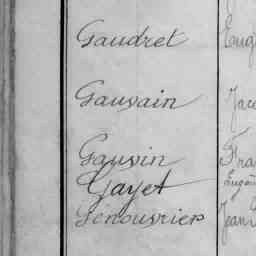 Gaudret
Gauvain
Gauvin
Gayet
Génouvrier